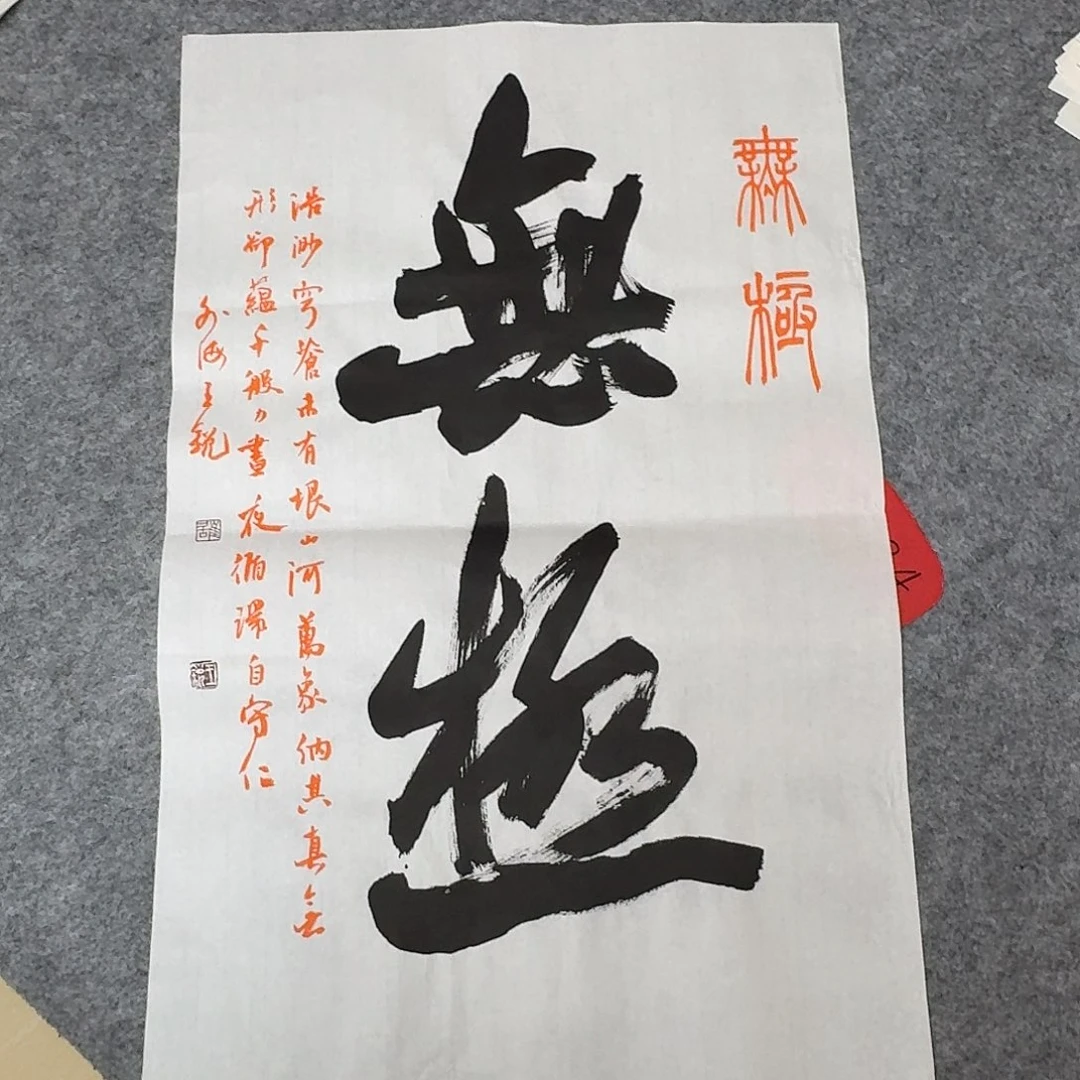 無極
無極
浩渺穹蒼未有垠山河萬象納其真無
形卻蘊千般力晝夜循環自守仁
外海王銳